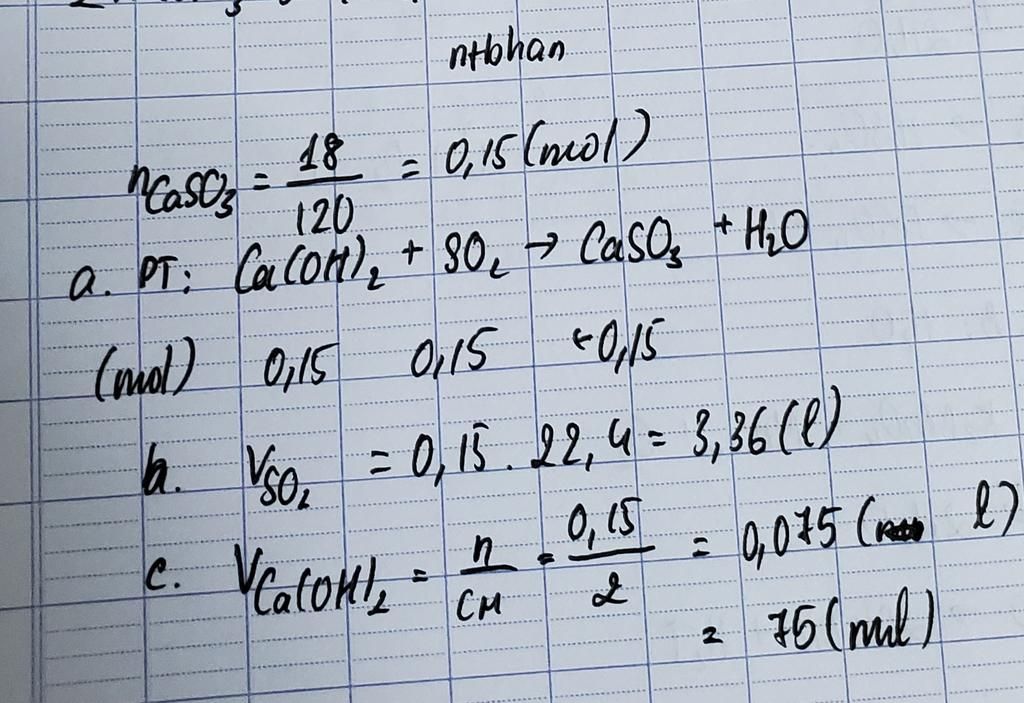 n+bhan
nCaSO3 = 18/120 = 0,15 (mol)
a. PT: Ca(OH)2 + SO2 → CaSO3 + H2O
(mol) 0,15 0,15 ←0,15
b. VSO2 = 0,15 . 22,4 = 3,36 (l)
c. VCa(OH)2 = n/CM = 0,15/2 = 0,075 (l)
= 75 (ml)